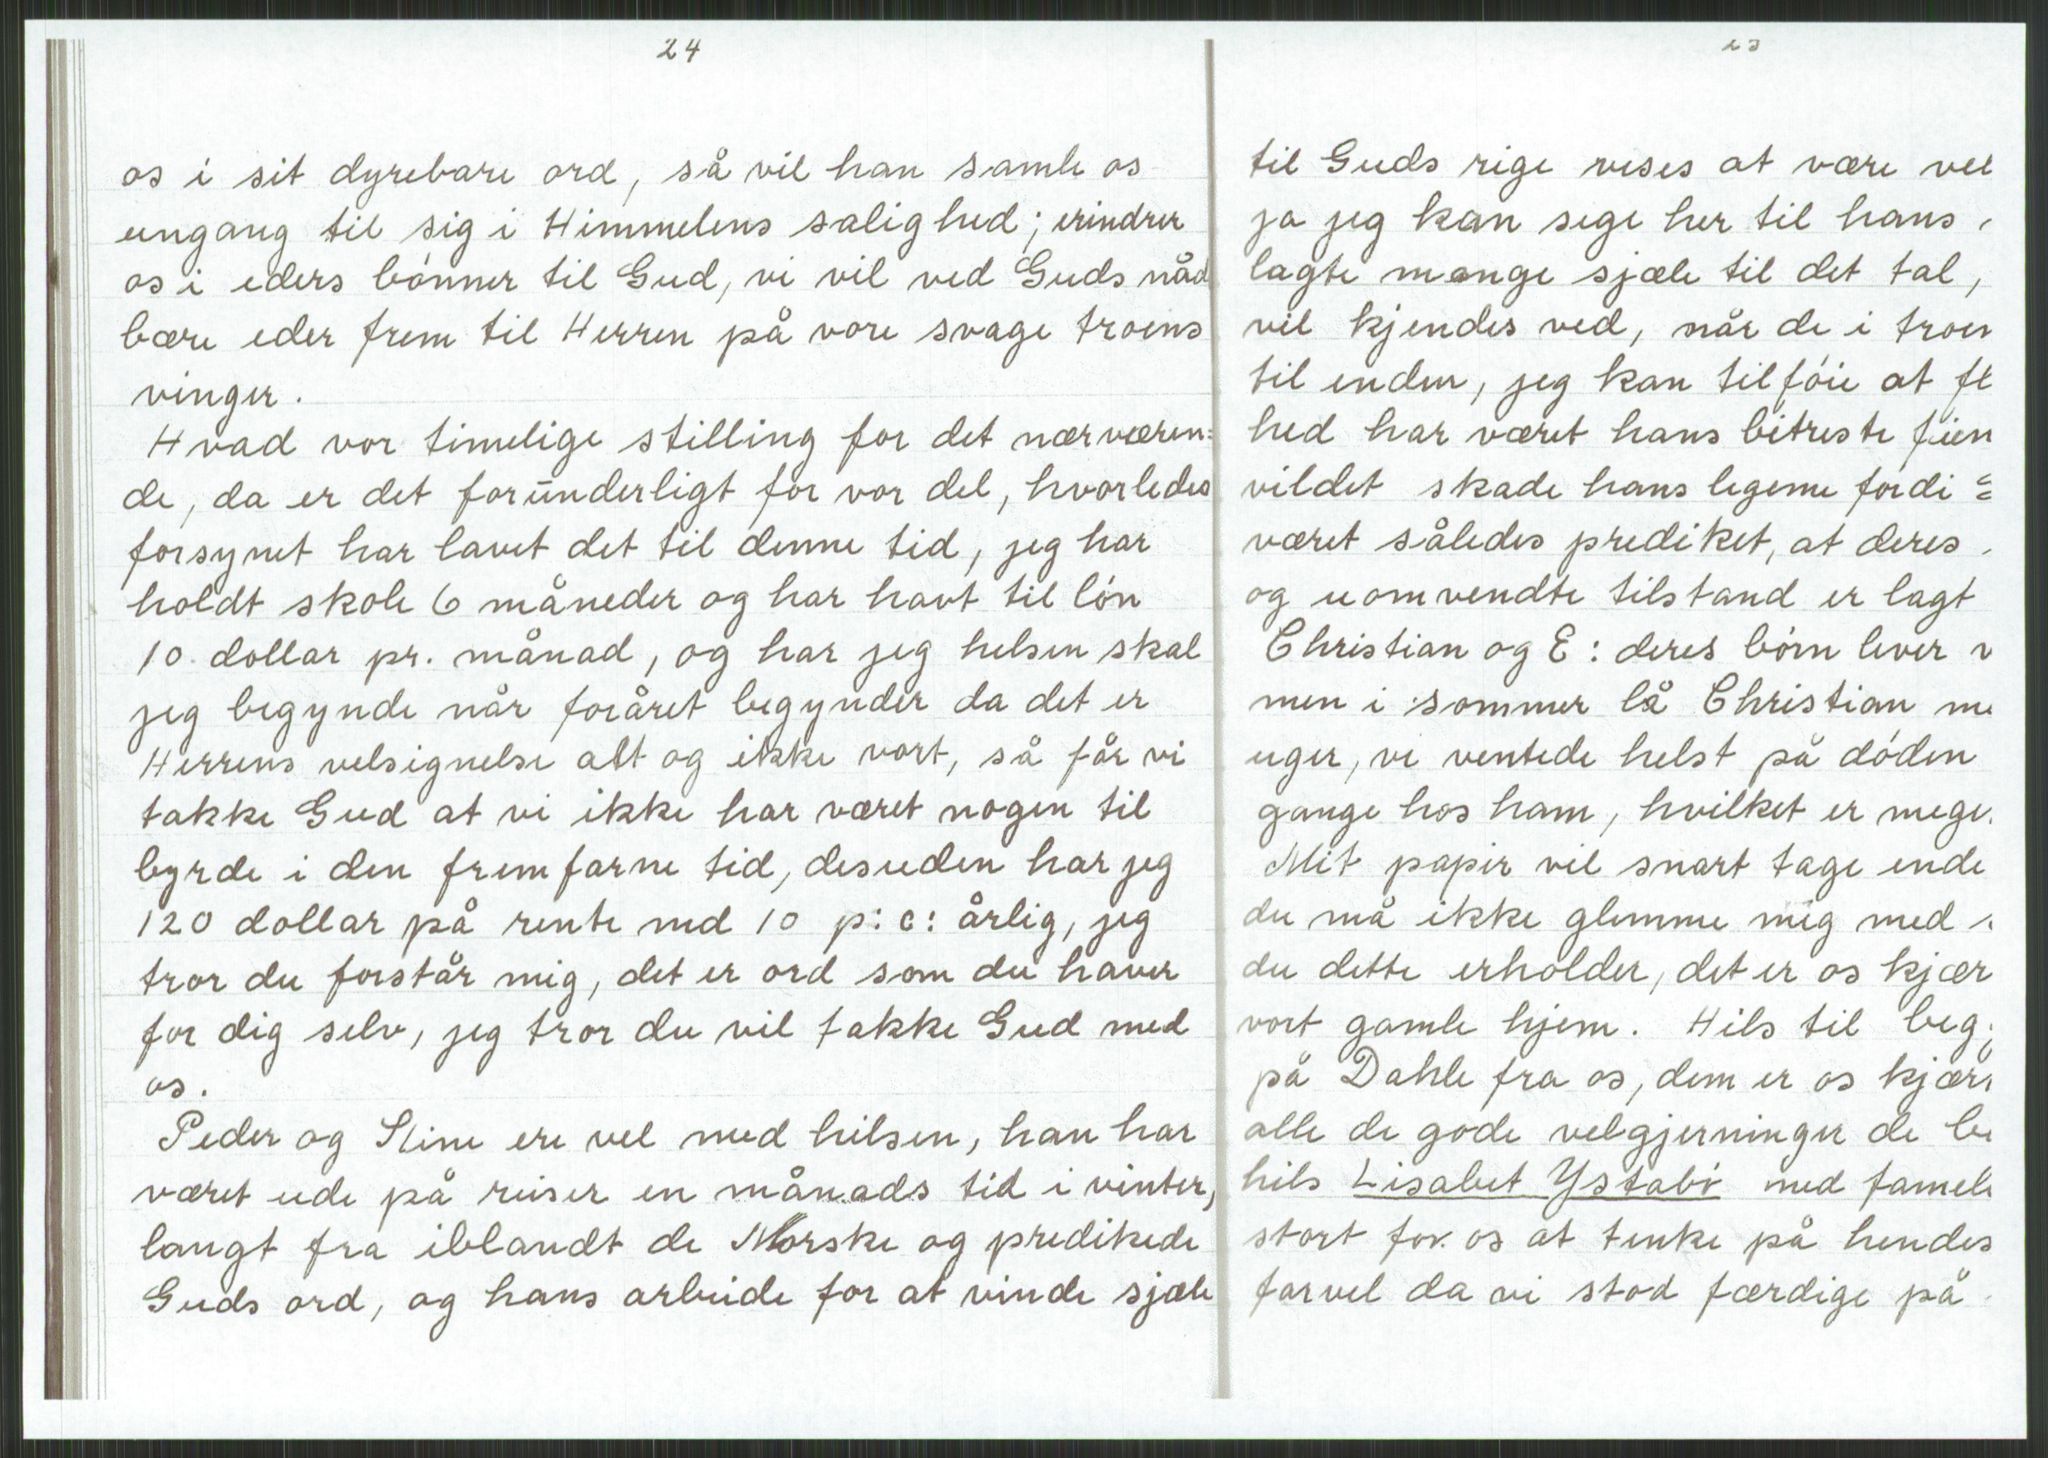 24
os i sit dyrebare ord, så vil han samle os
engang til sig i Himmelens salighed; erindrer
os i eders bönner til Gud, vi vil ved Guds nåd
bære eder frem til Herren på vore svage troens
vinger.
Hvad vor timelige stilling for det nærværen=
de, da er det forunderligt for vor del, hvorledes
forsynet har lavet det til denne tid, jeg har
holdt skole 6 måneder og har havt til lön
10 dollar pr. månad, og har jeg helsen skal
jeg begynde når foråret begynder da det er
Herrens velsignelse alt og ikke vort, så får vi
takke Gud at vi ikke har været nogen til
byrde i den fremfarne tid, desuden har jeg
120 dollar på rente med 10 p:c: årlig, jeg
tror du forstår mig, det er ord som du haver
for dig selv, jeg tror du vil takke Gud med
os.
Peder og Stine ere vel med hilsen, han har
været ude på reiser en månads tid i vinter,
langt fra iblandt de Norske og predikede
Guds ord, og hans arbeide for at vinde sjæle
til Guds rige vises at være vel
ja jeg kan sige her til hans
lagte mange sjæle til det tal,
vil kjendes ved, når de i troen
til enden, jeg kan tilföie at fl
hed har været hans bitreste fien
vildet skade hans legeme fordi
været således prediket, at deres
og uomvendte tilstand er lagt
Christian og E: deres börn lever v
men i sommer lå Christian me
uger, vi ventede helst på döden
gange hos ham, hvilket er mege
Mit papir vil snart tage ende
du må ikke glemme mig med
du dette erholder, det er os kjær
vort gamle hjem. Hils til beg
på Dahle fra os, dem er os kjær
alle de gode velgjerninger de be
hils Lisabet Ystabö med famel
stort for os at tenke på hendes
farvel da vi stod færdige på